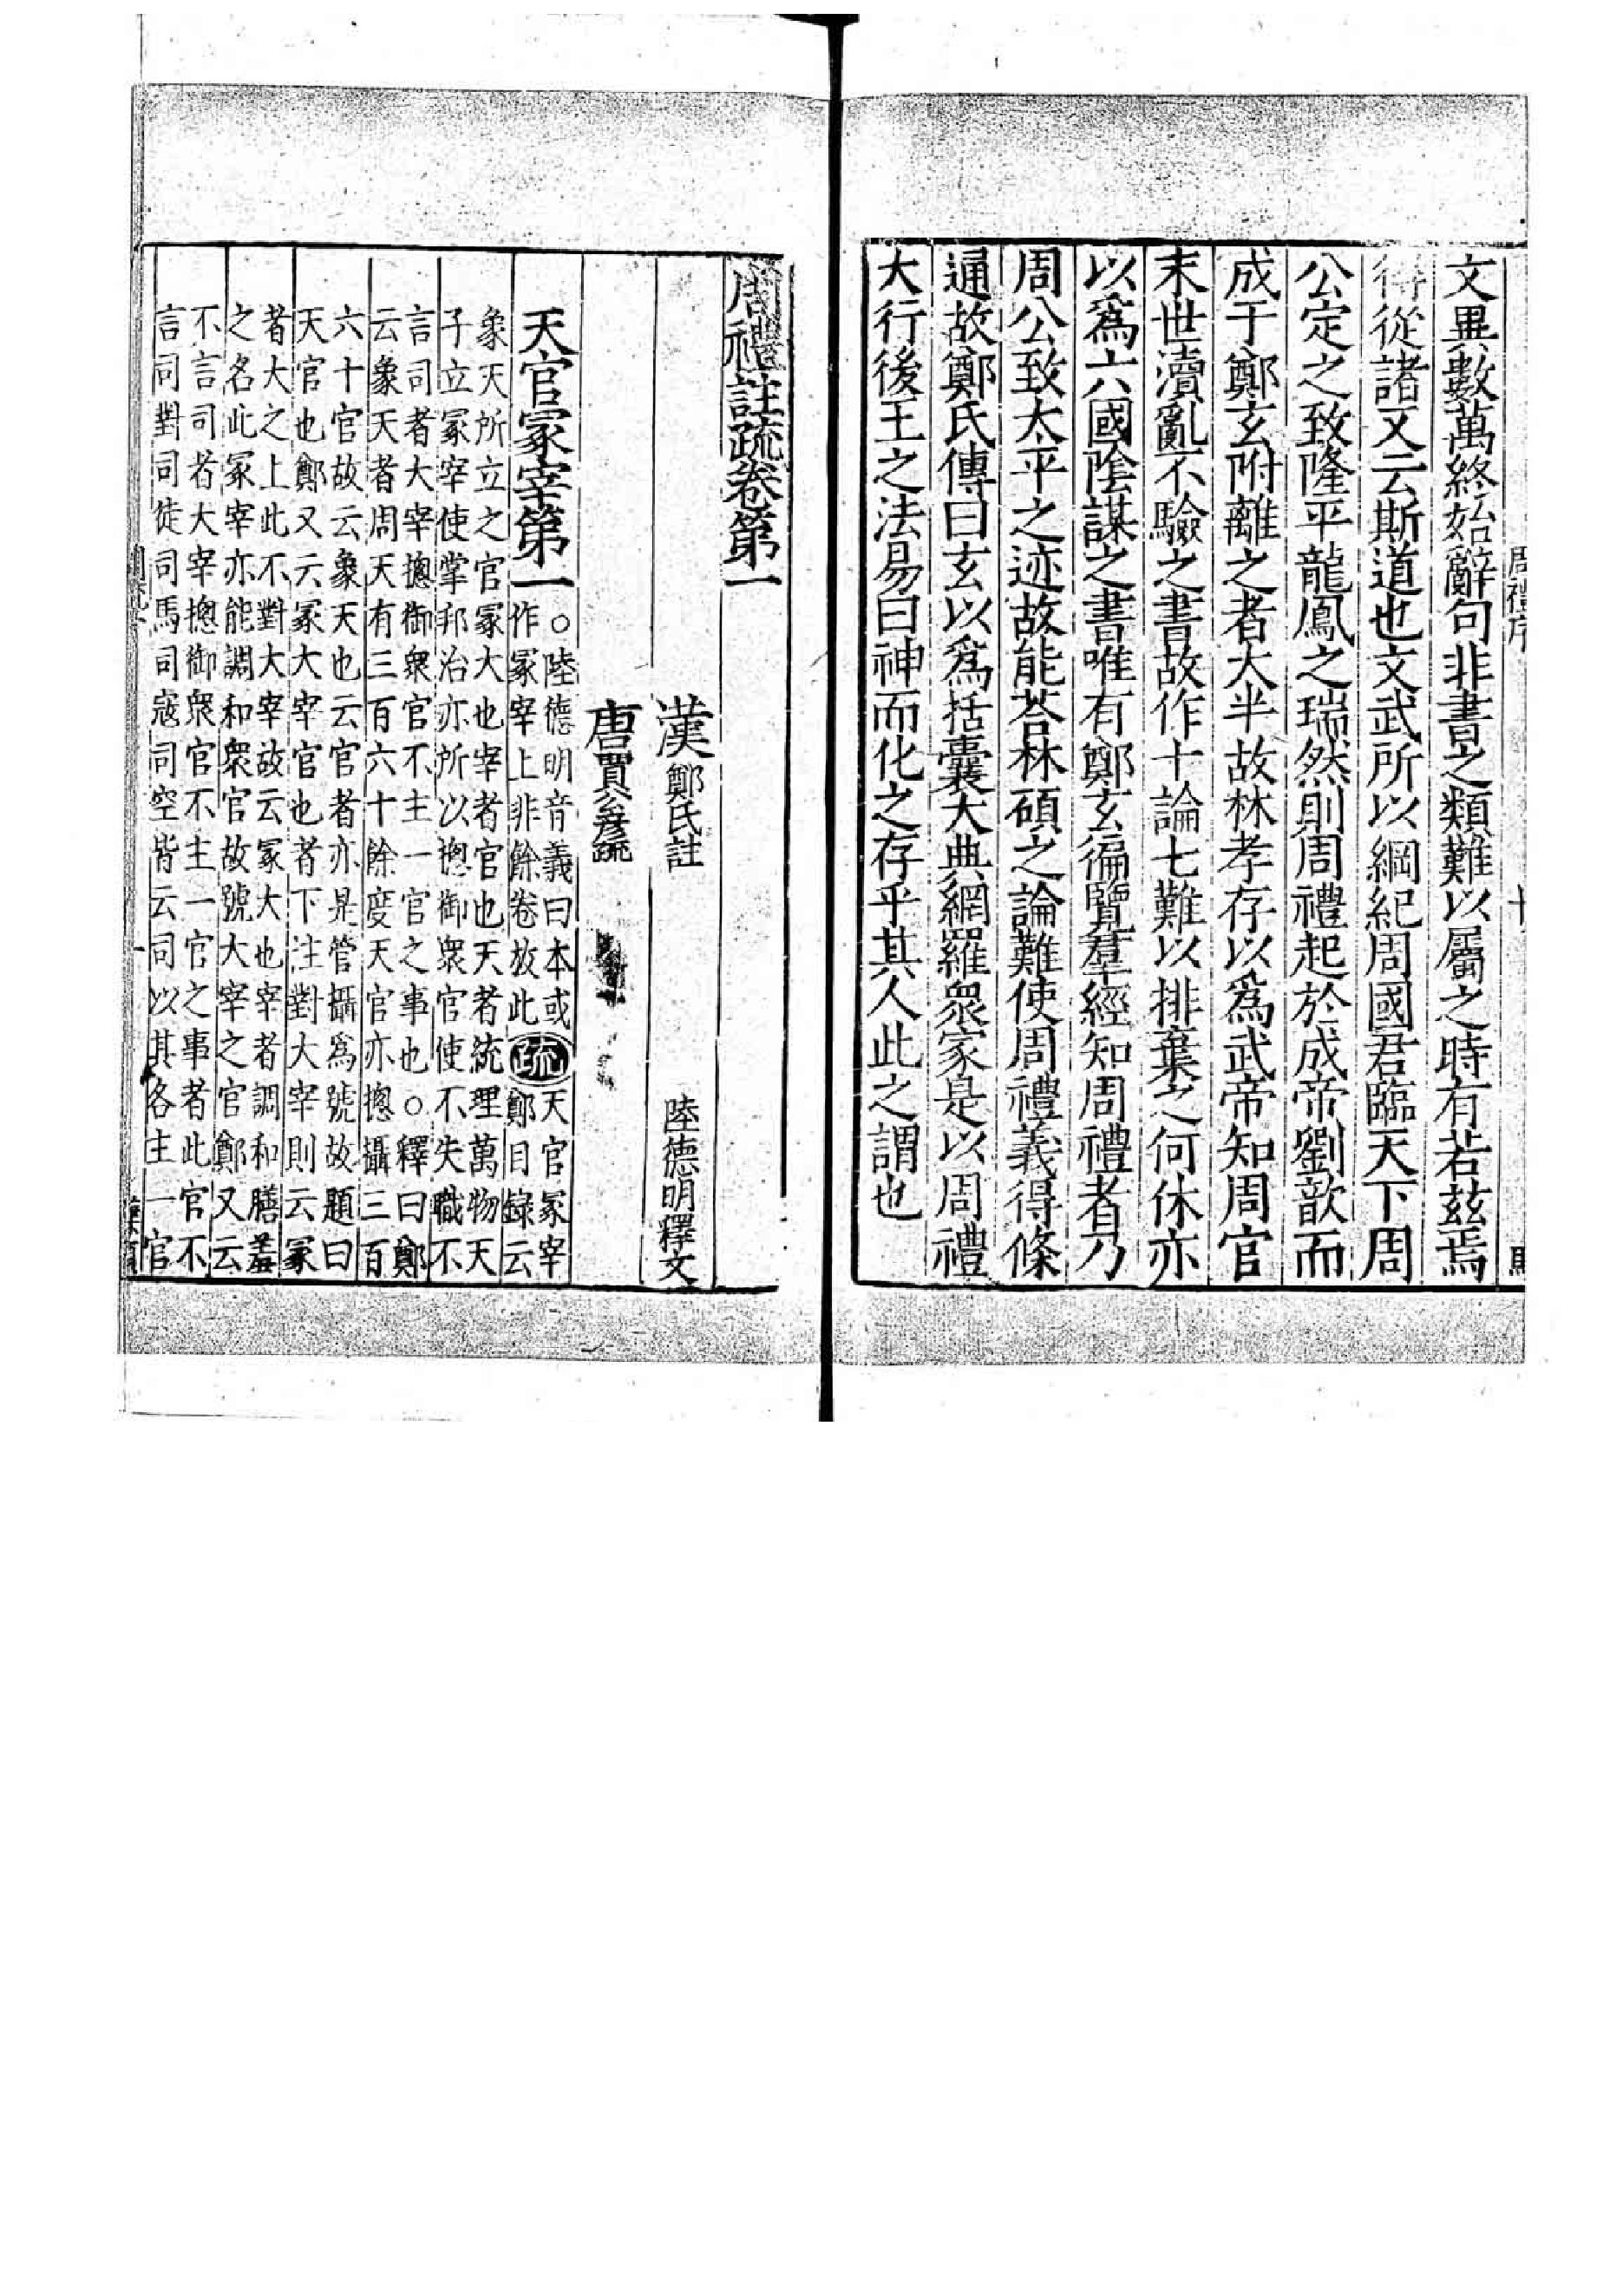 文異數萬終始辭句非書之類難以屬之時有若茲焉
得從諸又云斯道也文武所以綱紀周國君臨天下周
公定之致隆平龍鳳之瑞然則周禮起於成帝劉歆而
成于鄭玄附離之者大半故林孝存以爲武帝知周官
末世瀆亂不驗之書故作十論七難以排棄之何休亦
以爲六國陰謀之書唯有鄭玄徧覽羣經知周禮者乃
周公致太平之迹故能荅林碩之論難使周禮義得條
通故鄭氏傳曰玄以爲括囊大典網羅衆家是以周禮
大行後王之法易曰神而化之存乎其人此之謂也
周禮註疏卷第一
漢鄭氏註 陸德明釋文
唐賈公彥疏
天官冢宰第一
○陸德明音義曰本或
作冢宰上非餘卷放此
疏
天官冢宰
鄭目錄云
象天所立之官冢大也宰者官也天者統理萬物天
子立冢宰使掌邦治亦所以摠御衆官使不失職不
言司者大宰摠御衆官不主一官之事也○釋曰鄭
云象天者周天有三百六十餘度天官亦摠攝三百
六十官故云象天也云官者亦是管攝爲號故題曰
天官也鄭又云冢大宰官也者下注對大宰則云冢
者大之上此不對大宰故云冢大也宰者調和膳羞
之名此冢宰亦能調和衆官故號大宰之官鄭又云
不言司者大宰摠御衆官不主一官之事者此官不
言司對司徒司馬司寇司空皆云司以其各主一官